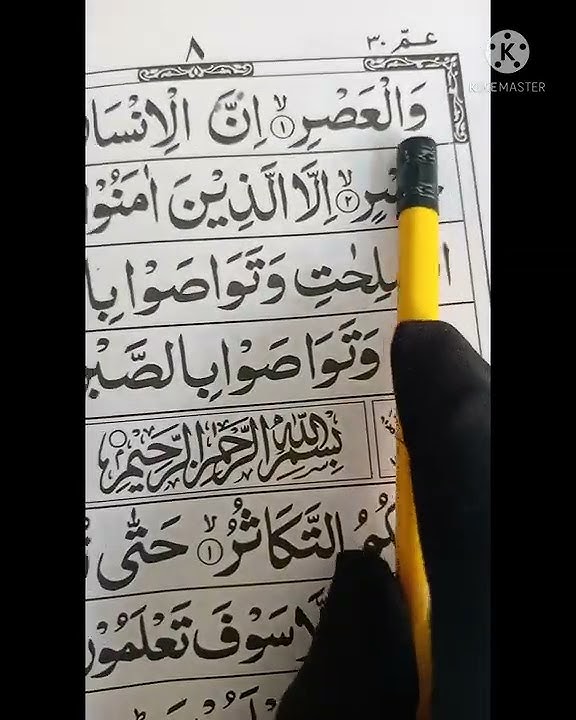 عمّ ٣٠
٨
KINEMASTER
وَالْعَصْرِ ۙ ١ اِنَّ الْاِنْسَا
٢ اِلَّا الَّذِيْنَ اٰمَنُوْ
وَتَوَاصَوْا بِا
وَتَوَاصَوْا بِالصَّبْ
بِسْمِ اللّٰهِ الرَّحْمٰنِ الرَّحِيْمِ
التَّكَاثُرُ ۙ ١ حَتّٰى
سَوْفَ تَعْلَمُوْ